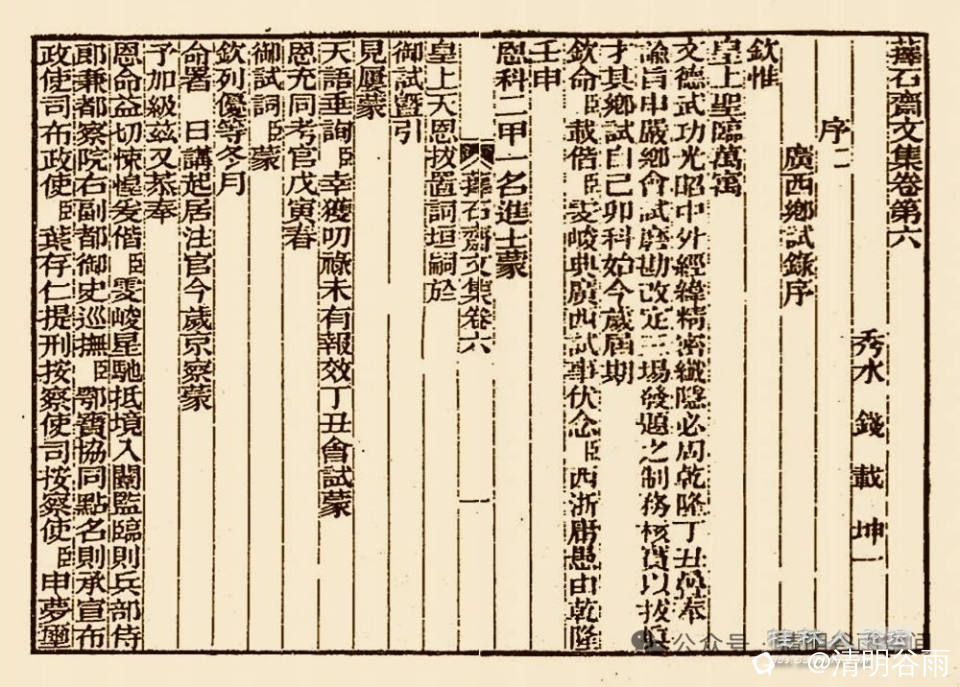 蘀石齋文集卷第六
秀水 錢 載 坤一
序二
廣西鄉試錄序
欽惟
皇上聖臨萬㝢
文德武功光昭中外經緯精密纖隱必周乾隆丁丑疊奉
諭旨申嚴鄉會試磨勘改定三場發題之制務核實以拔真
才其鄉試自己卯科始今歲屆期
欽命臣載偕臣雯峻典廣西試事伏念臣西浙庸愚由乾隆
壬申
恩科二甲一名進士蒙
蘀石齋文集卷六 一
皇上天恩拔置詞垣嗣於
御試曁引
見屢蒙
天語垂詢臣幸獲叨祿未有報效丁丑會試蒙
恩充同考官戊寅春
御試詞臣蒙
欽列優等冬月
命署 日講起居注官今歲京察蒙
予加級茲又恭奉
恩命益切悚惶爰偕臣雯峻星馳抵境入闈監臨則兵部侍
郎兼都察院右副都御史巡撫臣鄂寶協同點名則承宣布
政使司布政使臣葉存仁提刑按察使司按察使臣申夢璽
公众号
@清明谷雨